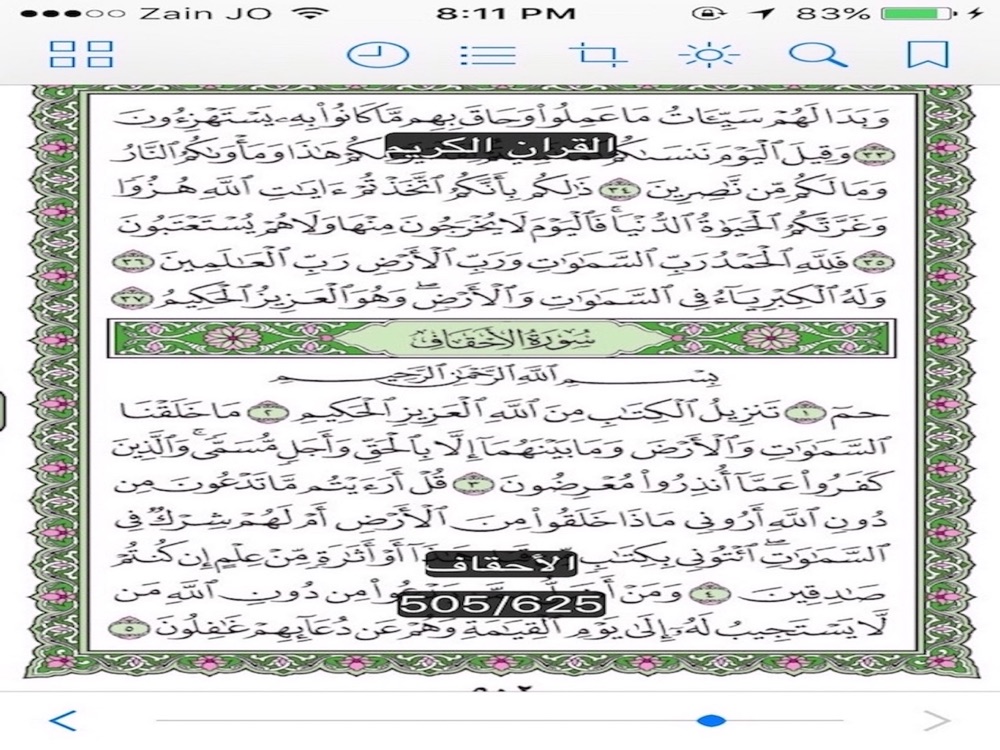 Zain JO 8:11 PM 83%
وَبَدَا لَهُمْ سَيِّـَٔاتُ مَا عَمِلُوا۟ وَحَاقَ بِهِم مَّا كَانُوا۟ بِهِۦ يَسْتَهْزِءُونَ
٣٣ وَقِيلَ ٱلْيَوْمَ نَنسَىٰكُمْ هَٰذَا وَمَأْوَىٰكُمُ ٱلنَّارُ
القران الكريم
وَمَا لَكُم مِّن نَّـٰصِرِينَ ٣٤ ذَٰلِكُم بِأَنَّكُمُ ٱتَّخَذْتُمْ ءَايَـٰتِ ٱللَّهِ هُزُوًا
وَغَرَّتْكُمُ ٱلْحَيَوٰةُ ٱلدُّنْيَا ۚ فَٱلْيَوْمَ لَا يُخْرَجُونَ مِنْهَا وَلَا هُمْ يُسْتَعْتَبُونَ
٣٥ فَلِلَّهِ ٱلْحَمْدُ رَبِّ ٱلسَّمَـٰوَٰتِ وَرَبِّ ٱلْأَرْضِ رَبِّ ٱلْعَـٰلَمِينَ ٣٦
وَلَهُ ٱلْكِبْرِيَآءُ فِى ٱلسَّمَـٰوَٰتِ وَٱلْأَرْضِ ۖ وَهُوَ ٱلْعَزِيزُ ٱلْحَكِيمُ ٣٧
سُورَةُ الأَحْقَافِ
بِسْمِ ٱللَّهِ ٱلرَّحْمَـٰنِ ٱلرَّحِيمِ
حمٓ ١ تَنزِيلُ ٱلْكِتَـٰبِ مِنَ ٱللَّهِ ٱلْعَزِيزِ ٱلْحَكِيمِ ٢ مَا خَلَقْنَا
ٱلسَّمَـٰوَٰتِ وَٱلْأَرْضَ وَمَا بَيْنَهُمَآ إِلَّا بِٱلْحَقِّ وَأَجَلٍ مُّسَمًّى ۚ وَٱلَّذِينَ
كَفَرُوا۟ عَمَّآ أُنذِرُوا۟ مُعْرِضُونَ ٣ قُلْ أَرَءَيْتُم مَّا تَدْعُونَ مِن
دُونِ ٱللَّهِ أَرُونِى مَاذَا خَلَقُوا۟ مِنَ ٱلْأَرْضِ أَمْ لَهُمْ شِرْكٌ فِى
ٱلسَّمَـٰوَٰتِ ۖ ٱئْتُونِى بِكِتَـٰبٍ أَوْ أَثَـٰرَةٍ مِّنْ عِلْمٍ إِن كُنتُمْ
الأحقاف
صَـٰدِقِينَ ٤ وَمَنْ مِن دُونِ ٱللَّهِ مَن
505/625
لَّا يَسْتَجِيبُ لَهُۥٓ إِلَىٰ يَوْمِ ٱلْقِيَـٰمَةِ وَهُمْ عَن دُعَآئِهِمْ غَـٰفِلُونَ ٥